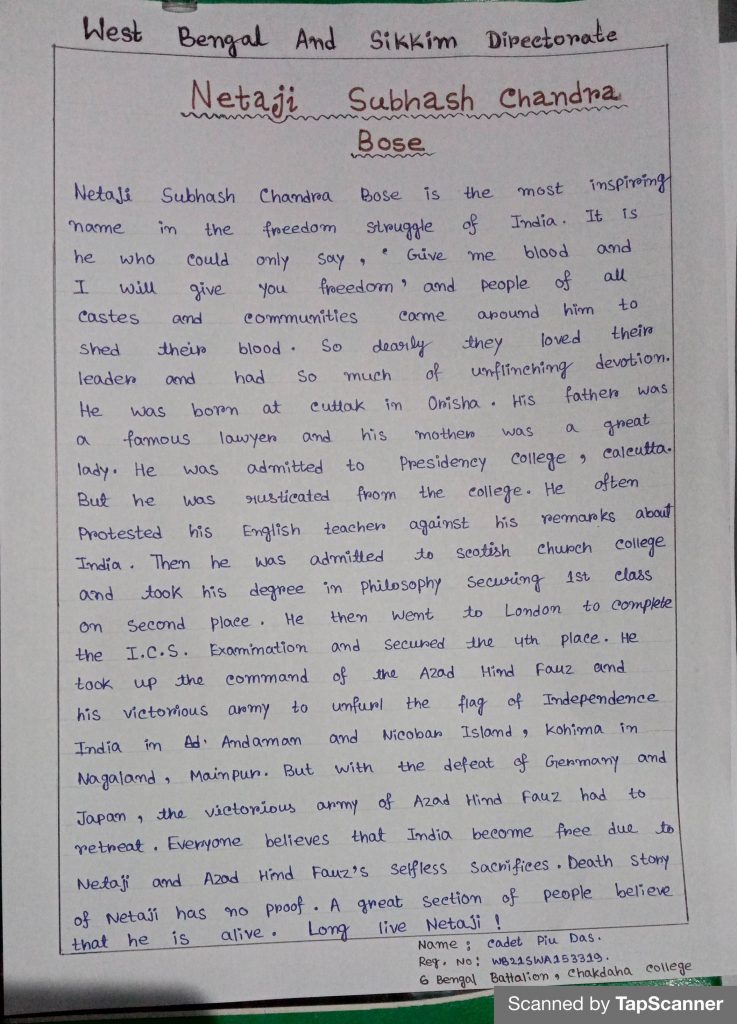 West Bengal And Sikkim Directorate
Netaji Subhash Chandra
Bose
Netaji Subhash Chandra Bose is the most inspiring
name in the freedom struggle of India. It is
he who could only say, ‘Give me blood and
I will give you freedom’ and people of all
castes and communities came around him to
shed their blood. So dearly they loved their
leader and had so much of unflinching devotion.
He was born at cuttak in Orisha. His father was
a famous lawyer and his mother was a great
lady. He was admitted to Presidency college, calcutta.
But he was rusticated from the college. He often
Protested his English teacher against his remarks about
India. Then he was admitted to scotish church college
and took his degree in Philosophy securing 1st class
on second place. He then went to London to complete
the I.C.S. Examination and secured the 4th place. He
took up the command of the Azad Hind Fauz and
his victorious army to unfurl the flag of Independence
India in Ad. Andaman and Nicobar Island, Kohima in
Nagaland, Mainpur. But with the defeat of Germany and
Japan, the victorious army of Azad Hind Fauz had to
retreat. Everyone believes that India become free due to
Netaji and Azad Hind Fauz's selfless sacrifices. Death story
of Netaji has no proof. A great section of people believe
that he is alive. Long live Netaji!
Name: cadet Piu Das.
Reg. No: WB21SWA153319.
6 Bengal Battalion, Chakdaha college
Scanned by TapScanner